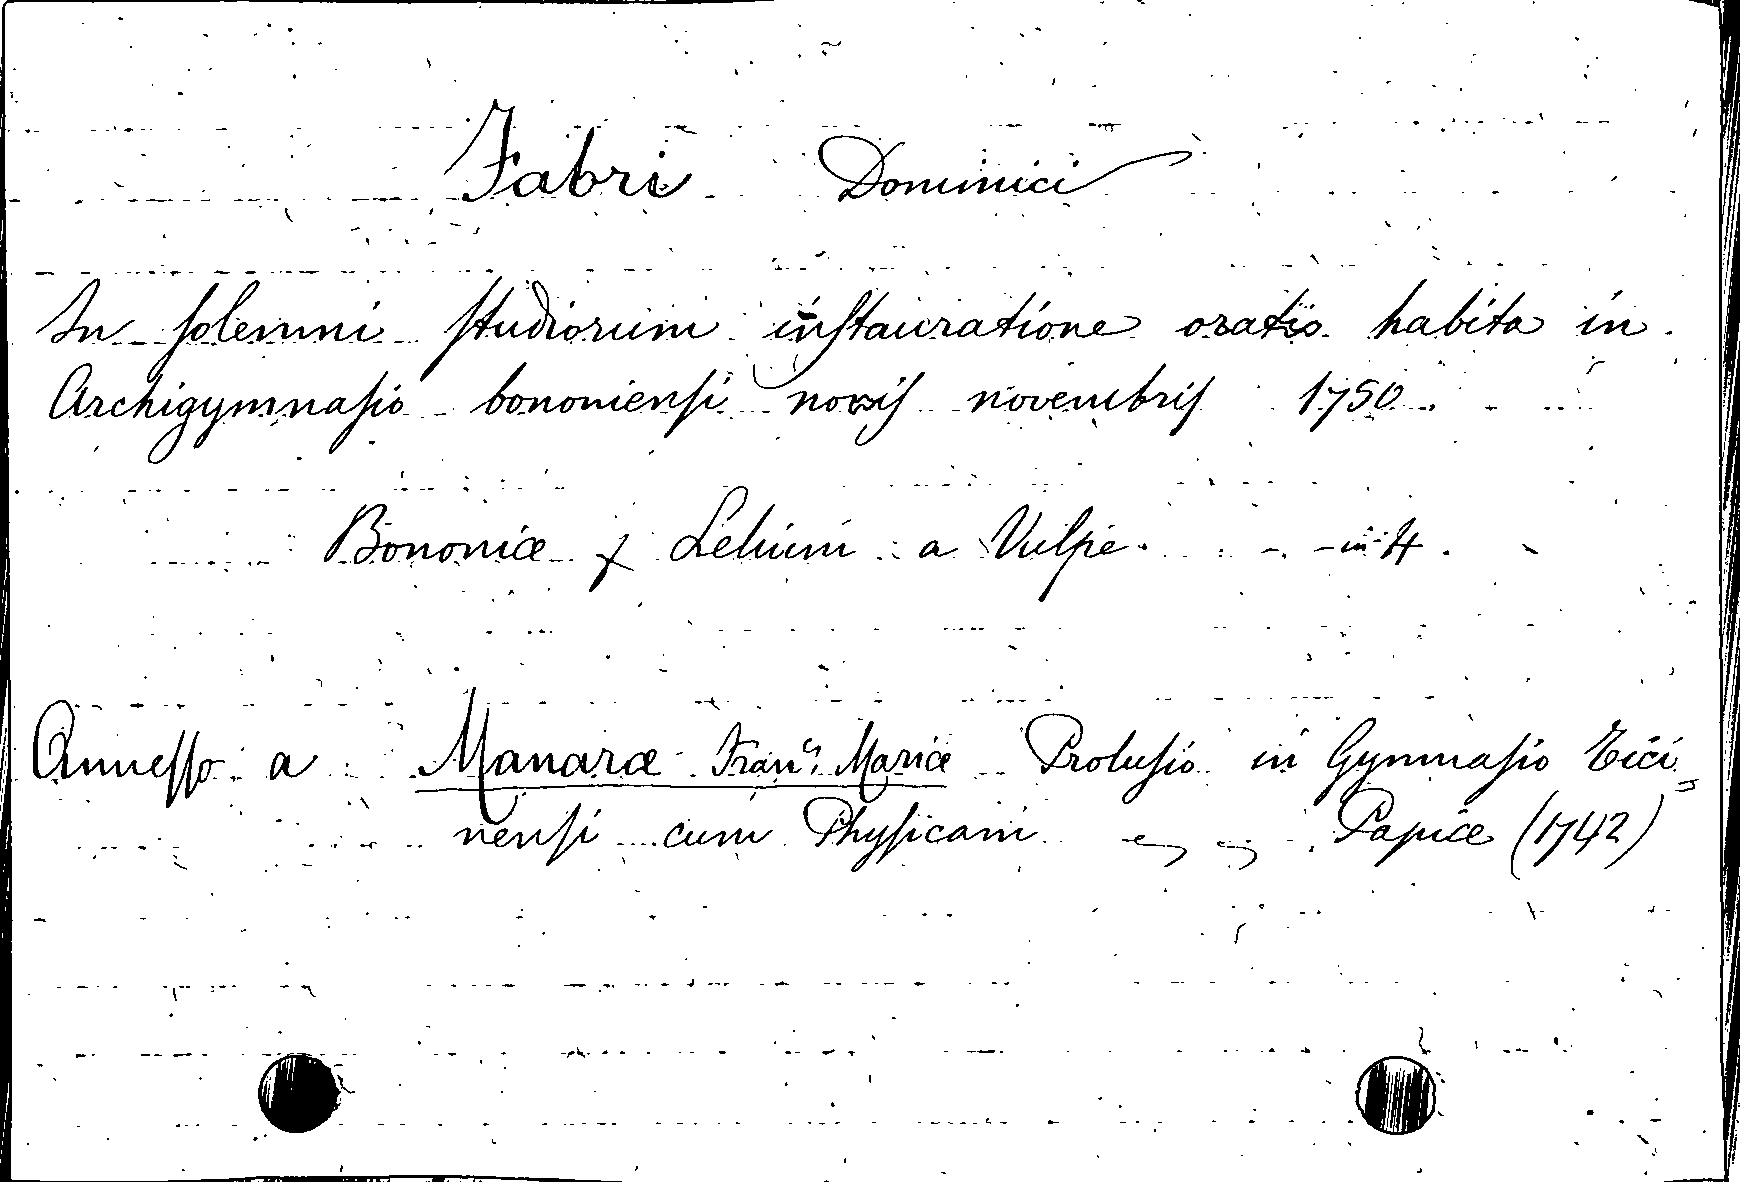 Fabri Dominici
In solemni studiorum instauratione oratio habita in
Archigymnasio bononiensi nonis novembris 1750
Bononiæ f Lelium a Vulpe. in 4.
Annesso a Manaræ Franci Mariæ Prolusio in Gymnasio Tici=
nensi cum Physicam Papiæ (1742)